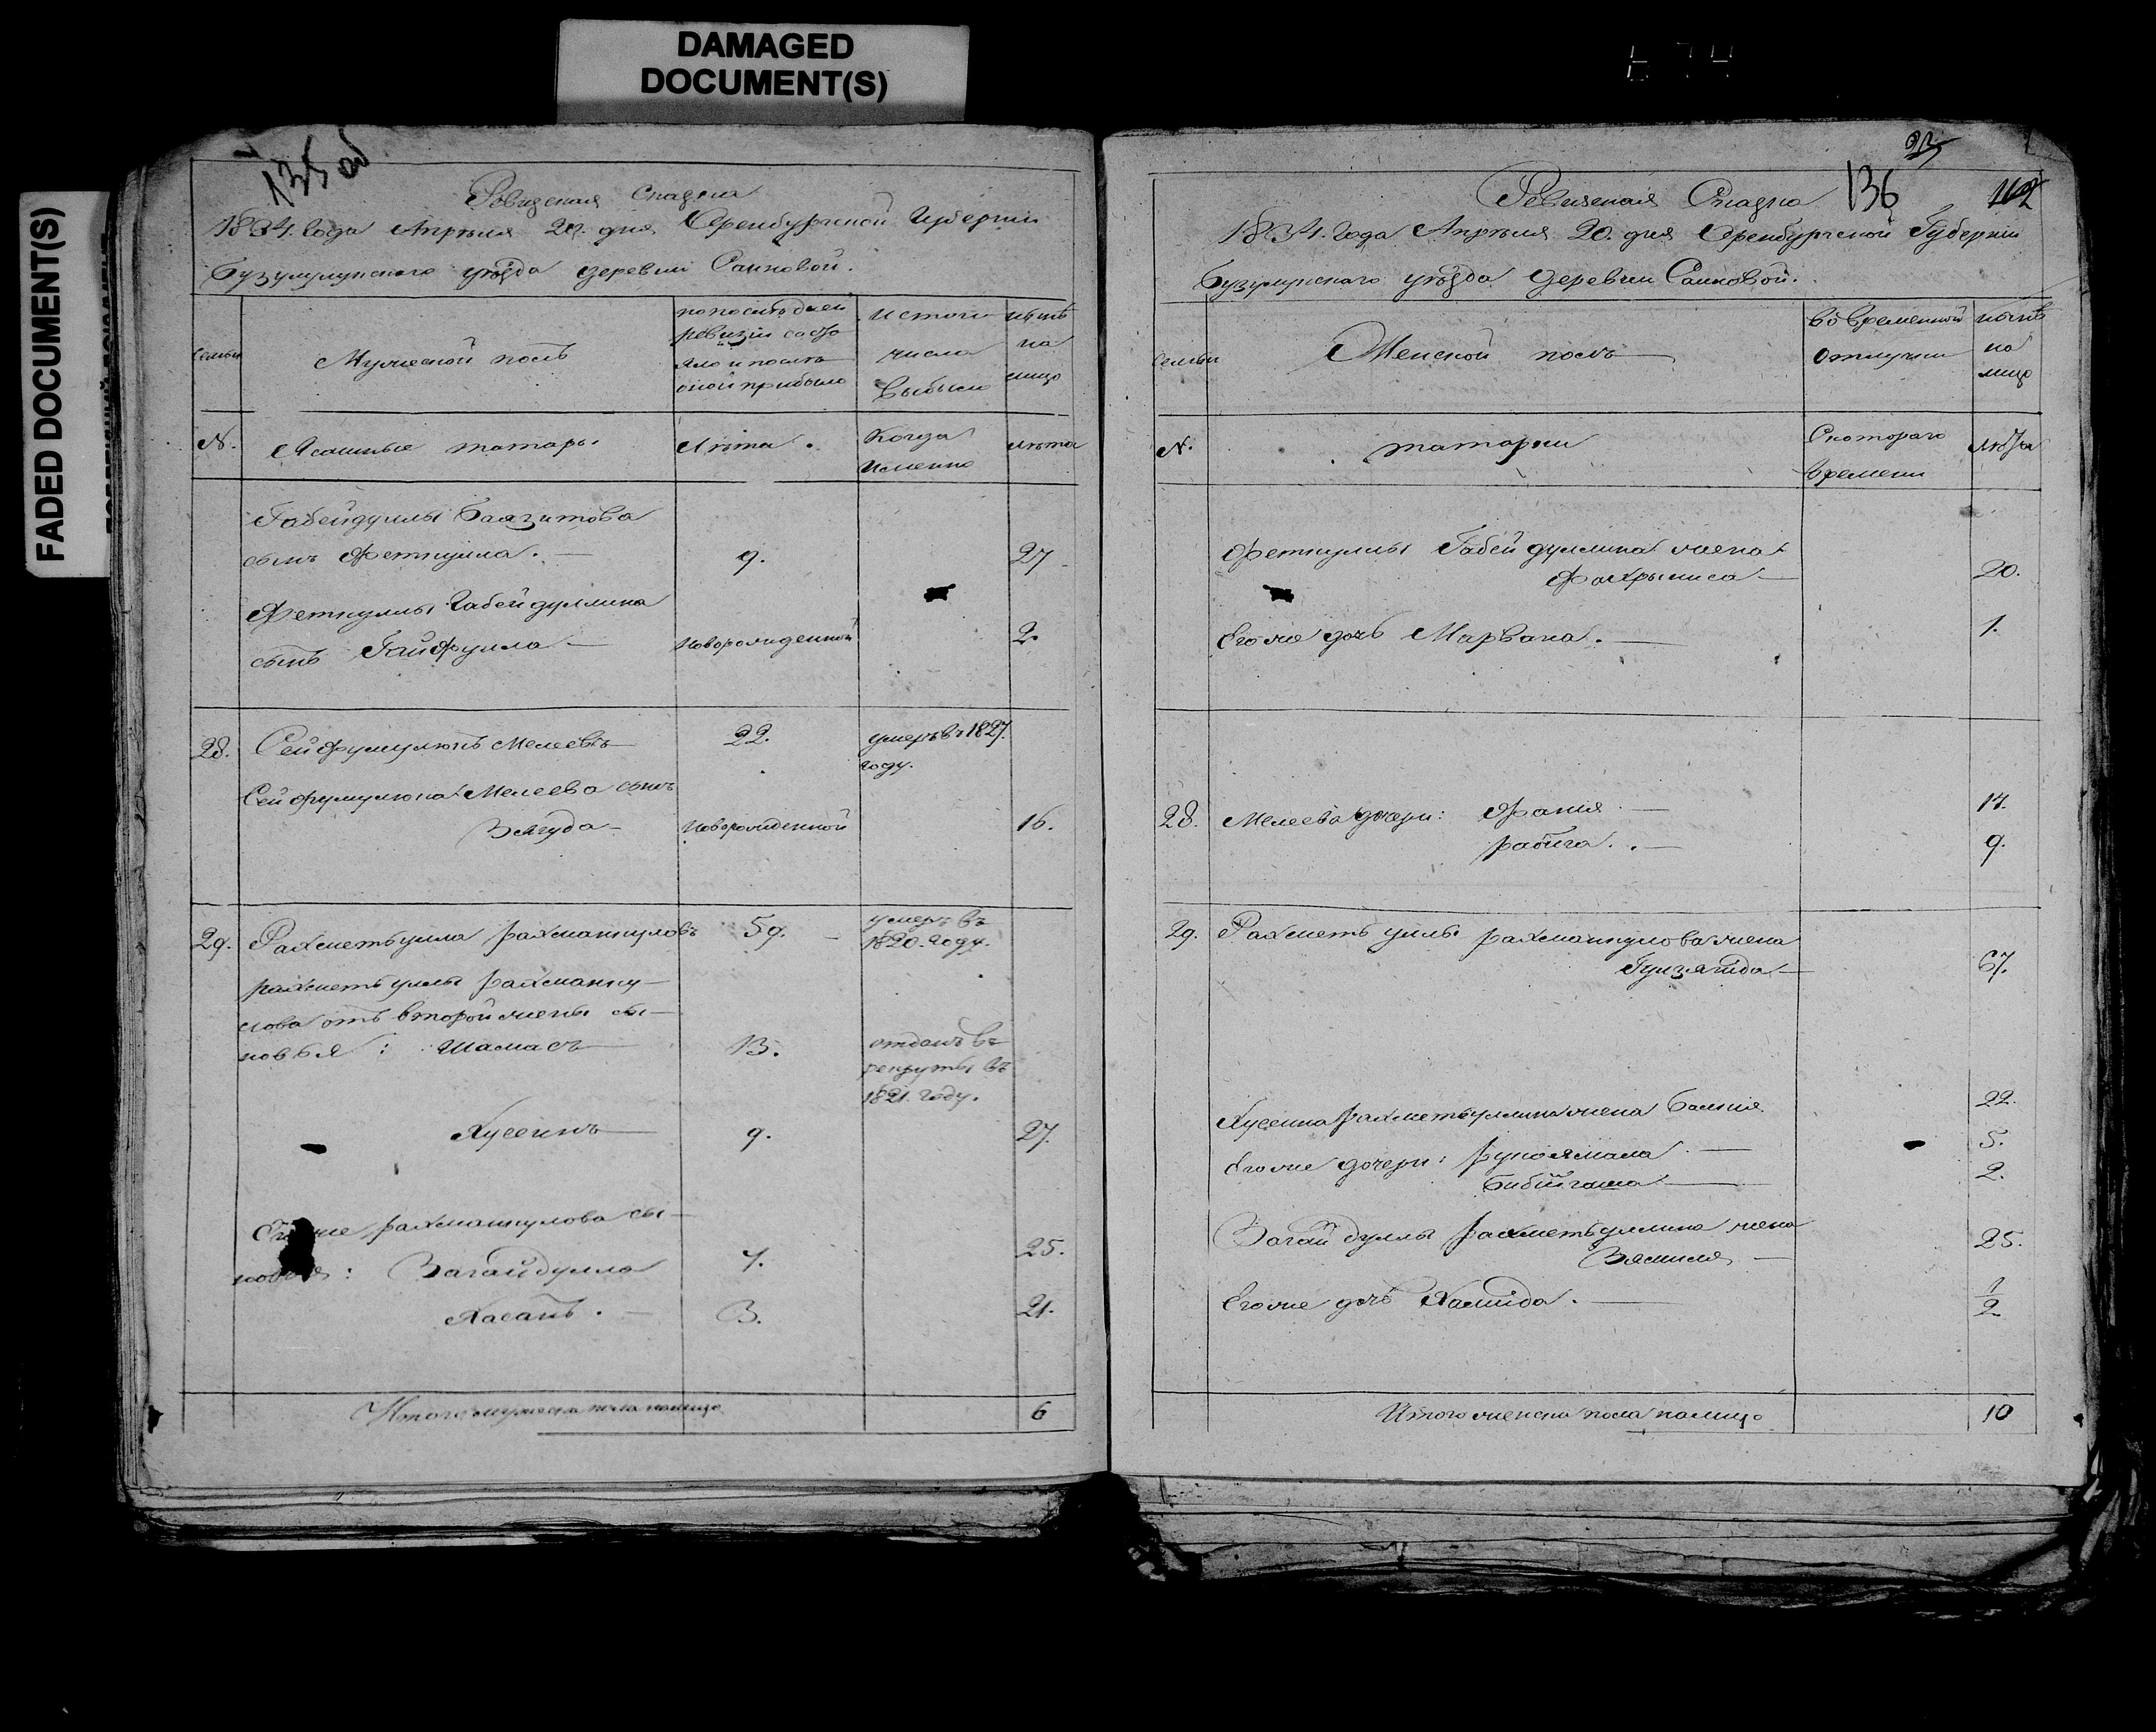 DAMAGED
DOCUMENT(S)
FADED DOCUMENT(S)
135 об
Ревизская Сказка
1834. года Апреля 20. дня Оренбургской Губернии
Бузулукского уѣзда деревни Саиновой.
семьи
Мужеской полъ
по последней
ревизіи состо
яло и послѣ
оной прибыло
Изтого
числа
выбыло
нынѣ
на
лицо
№.
Ясашные татары
Лѣта.
Когда
имянно
лѣта
Габейдуллы Баязитова
сынъ Феткулла. — 9. 27
Феткуллы Габейдуллина
сынъ Гайфулла — новорожденной 2.
28. Сейфулмулюкъ Мелеевъ 22. умеръ въ 1827.
году.
Сейфулмулюка Мелеева сынъ
Вягуда — новорожденной 16.
29. Рахметьулла рахманкуловъ 59. — умеръ въ
1820. году.
рахметьуллы рахманку—
лова отъ второй жены сы—
новья: Шамасъ 13. отданъ въ
рекруты въ
1821. году.
Хусеинъ 9. 27.
Егоже рахманкулова сы—
новья: Вагайдулла 7. 25.
Хасанъ. — 3. 21.
Итого мужеска пола налицо 6
92
136
112
Ревизская Сказка
1834. Года Апреля 20. дня Оренбургской Губерніи
Бузулукского уѣзда деревни Саиновой.
семьи
Женской полъ
во временной
отлучки
нынѣ
на
лицо
№.
татарки
Скотораго
времени
лѣта
Феткуллы Габейдуллина жена
Фахрыниса — 20.
Егоже дочь Марвана. — 1.
28. Мелеева дочери: Фания — 17.
рабига. — 9.
29. Рахметьуллы рахманкулова жена
Гулзягида — 67.
Хусеина рахметьуллина жена Балкия 22.
Егоже дочери: рукоямала — 5.
Бибигаша — 2.
Вагайдуллы рахметьуллина жена
Вямиля — 25.
Егоже дочь Хамида. — 1/2
Итого женска пола налицо 10